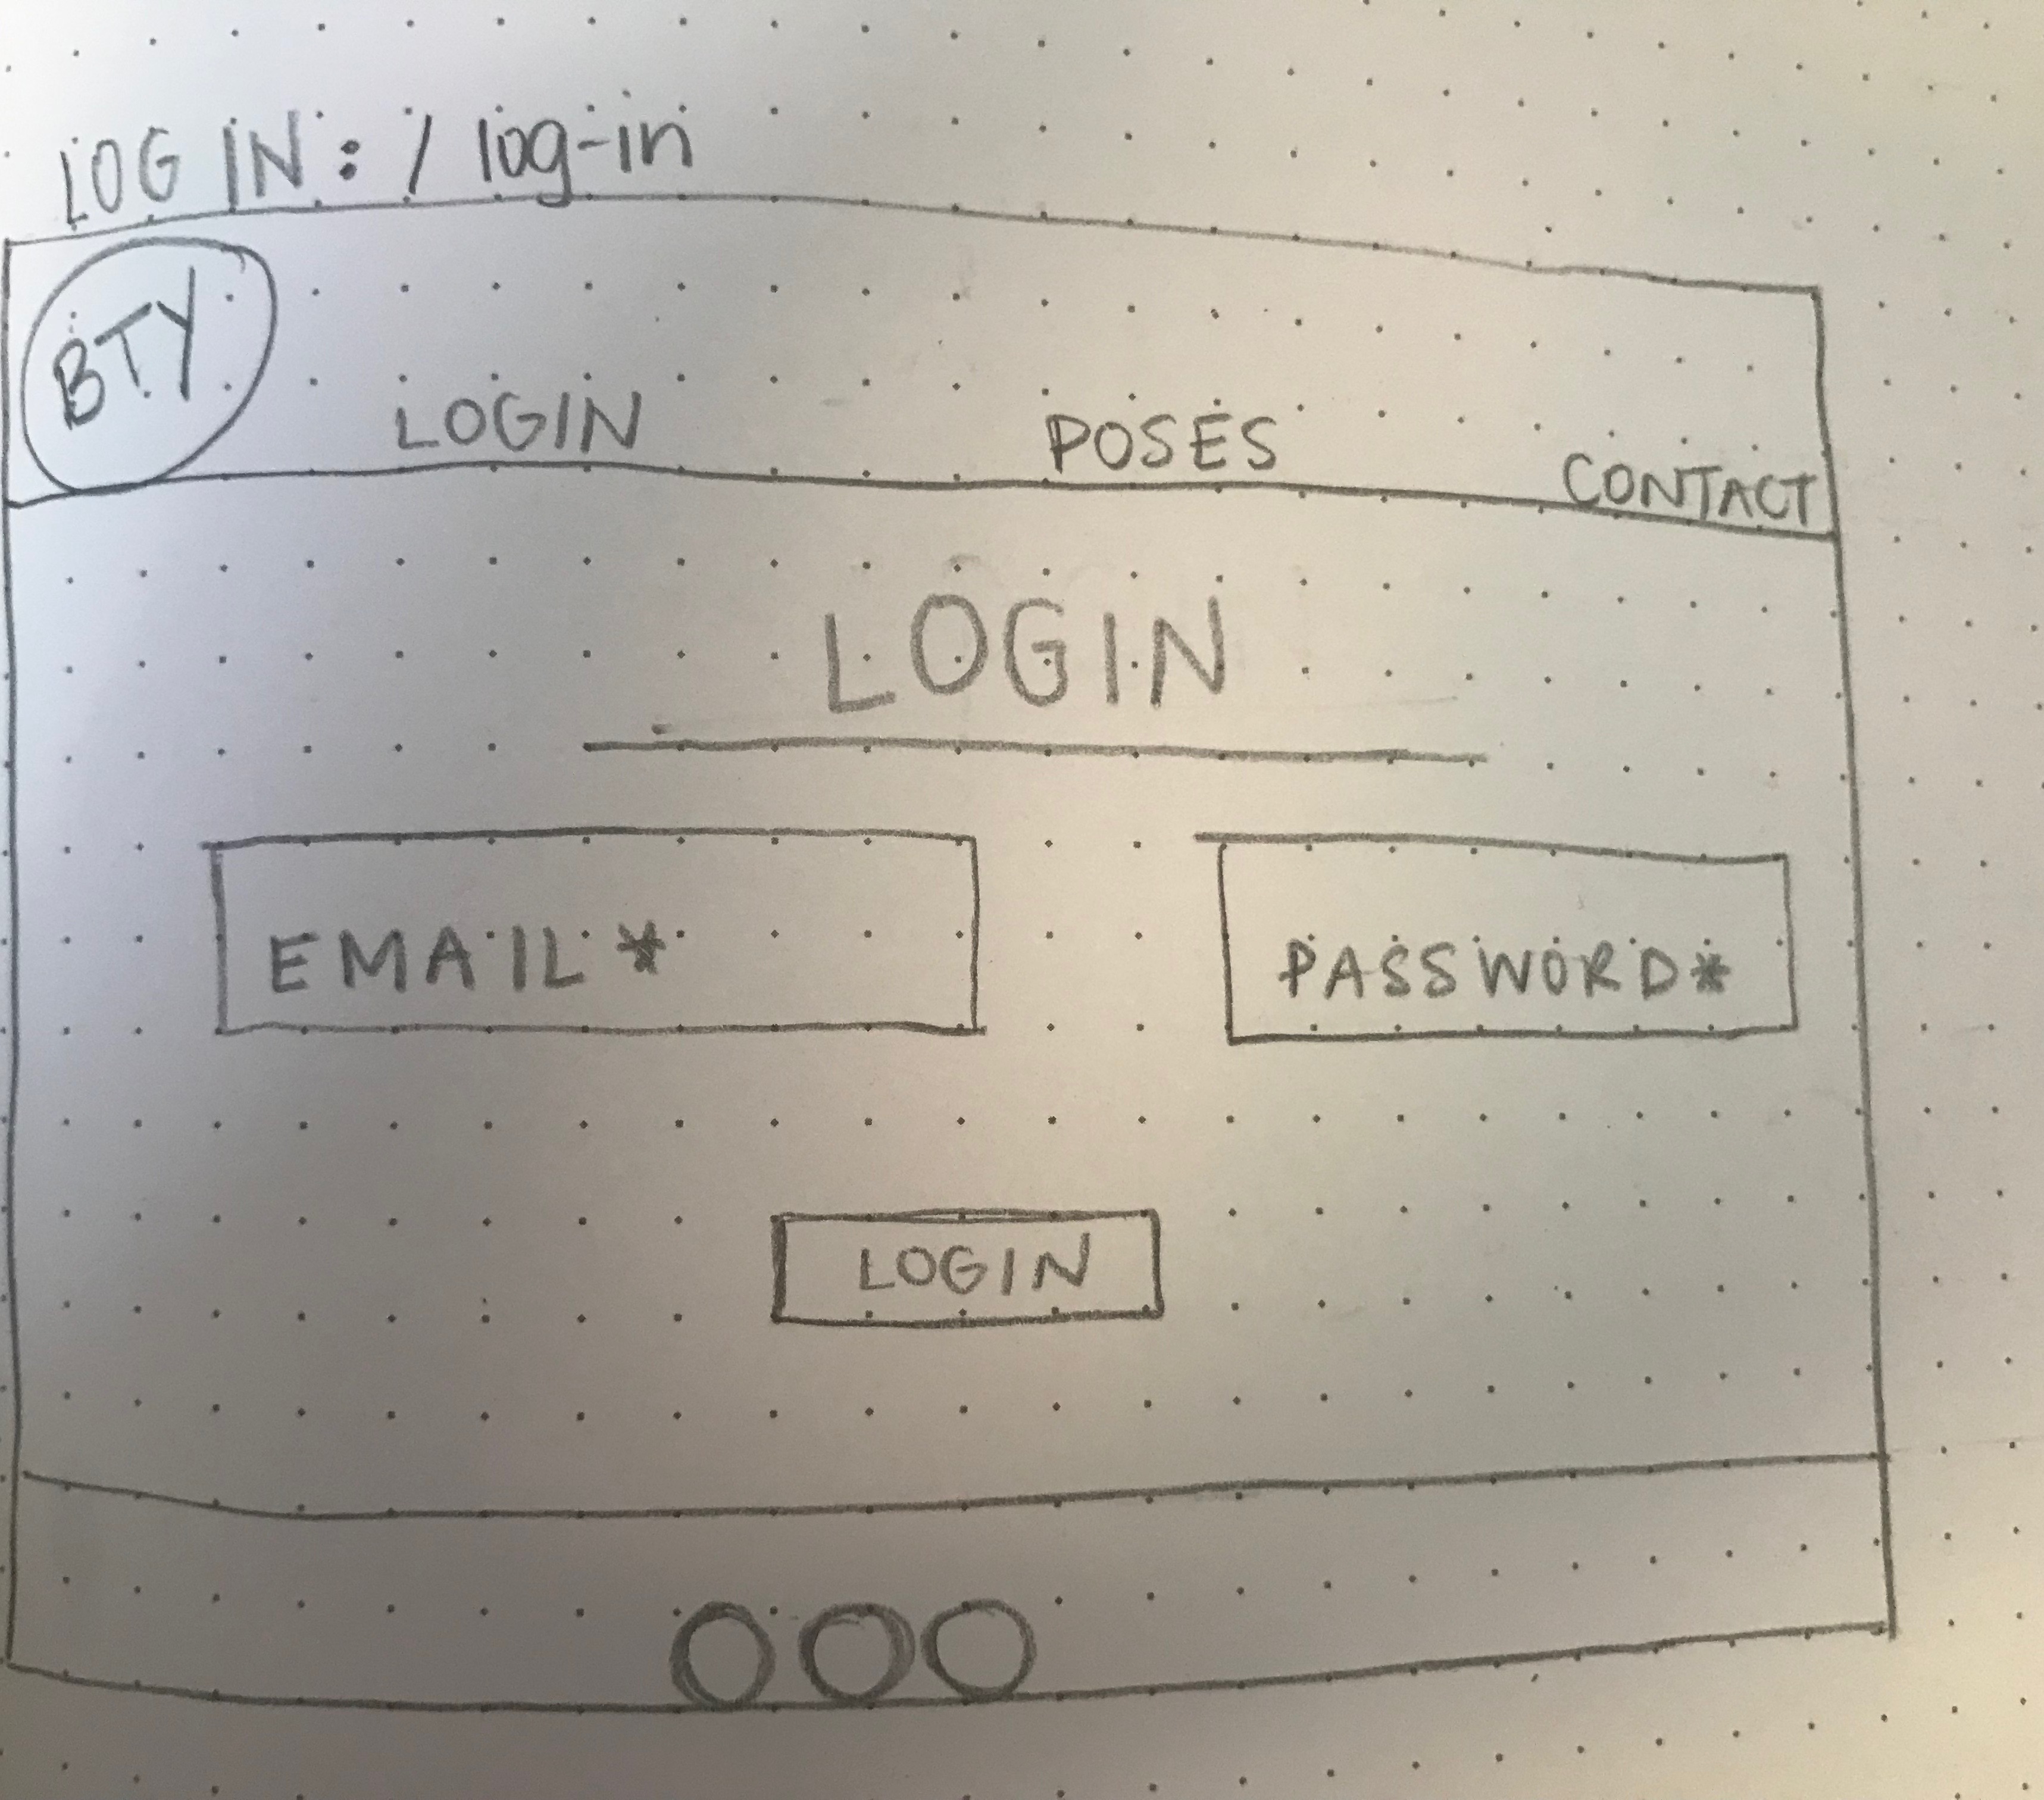 LOG IN: / log-in
BTY
LOGIN POSES CONTACT
LOGIN
EMAIL * PASSWORD *
LOGIN